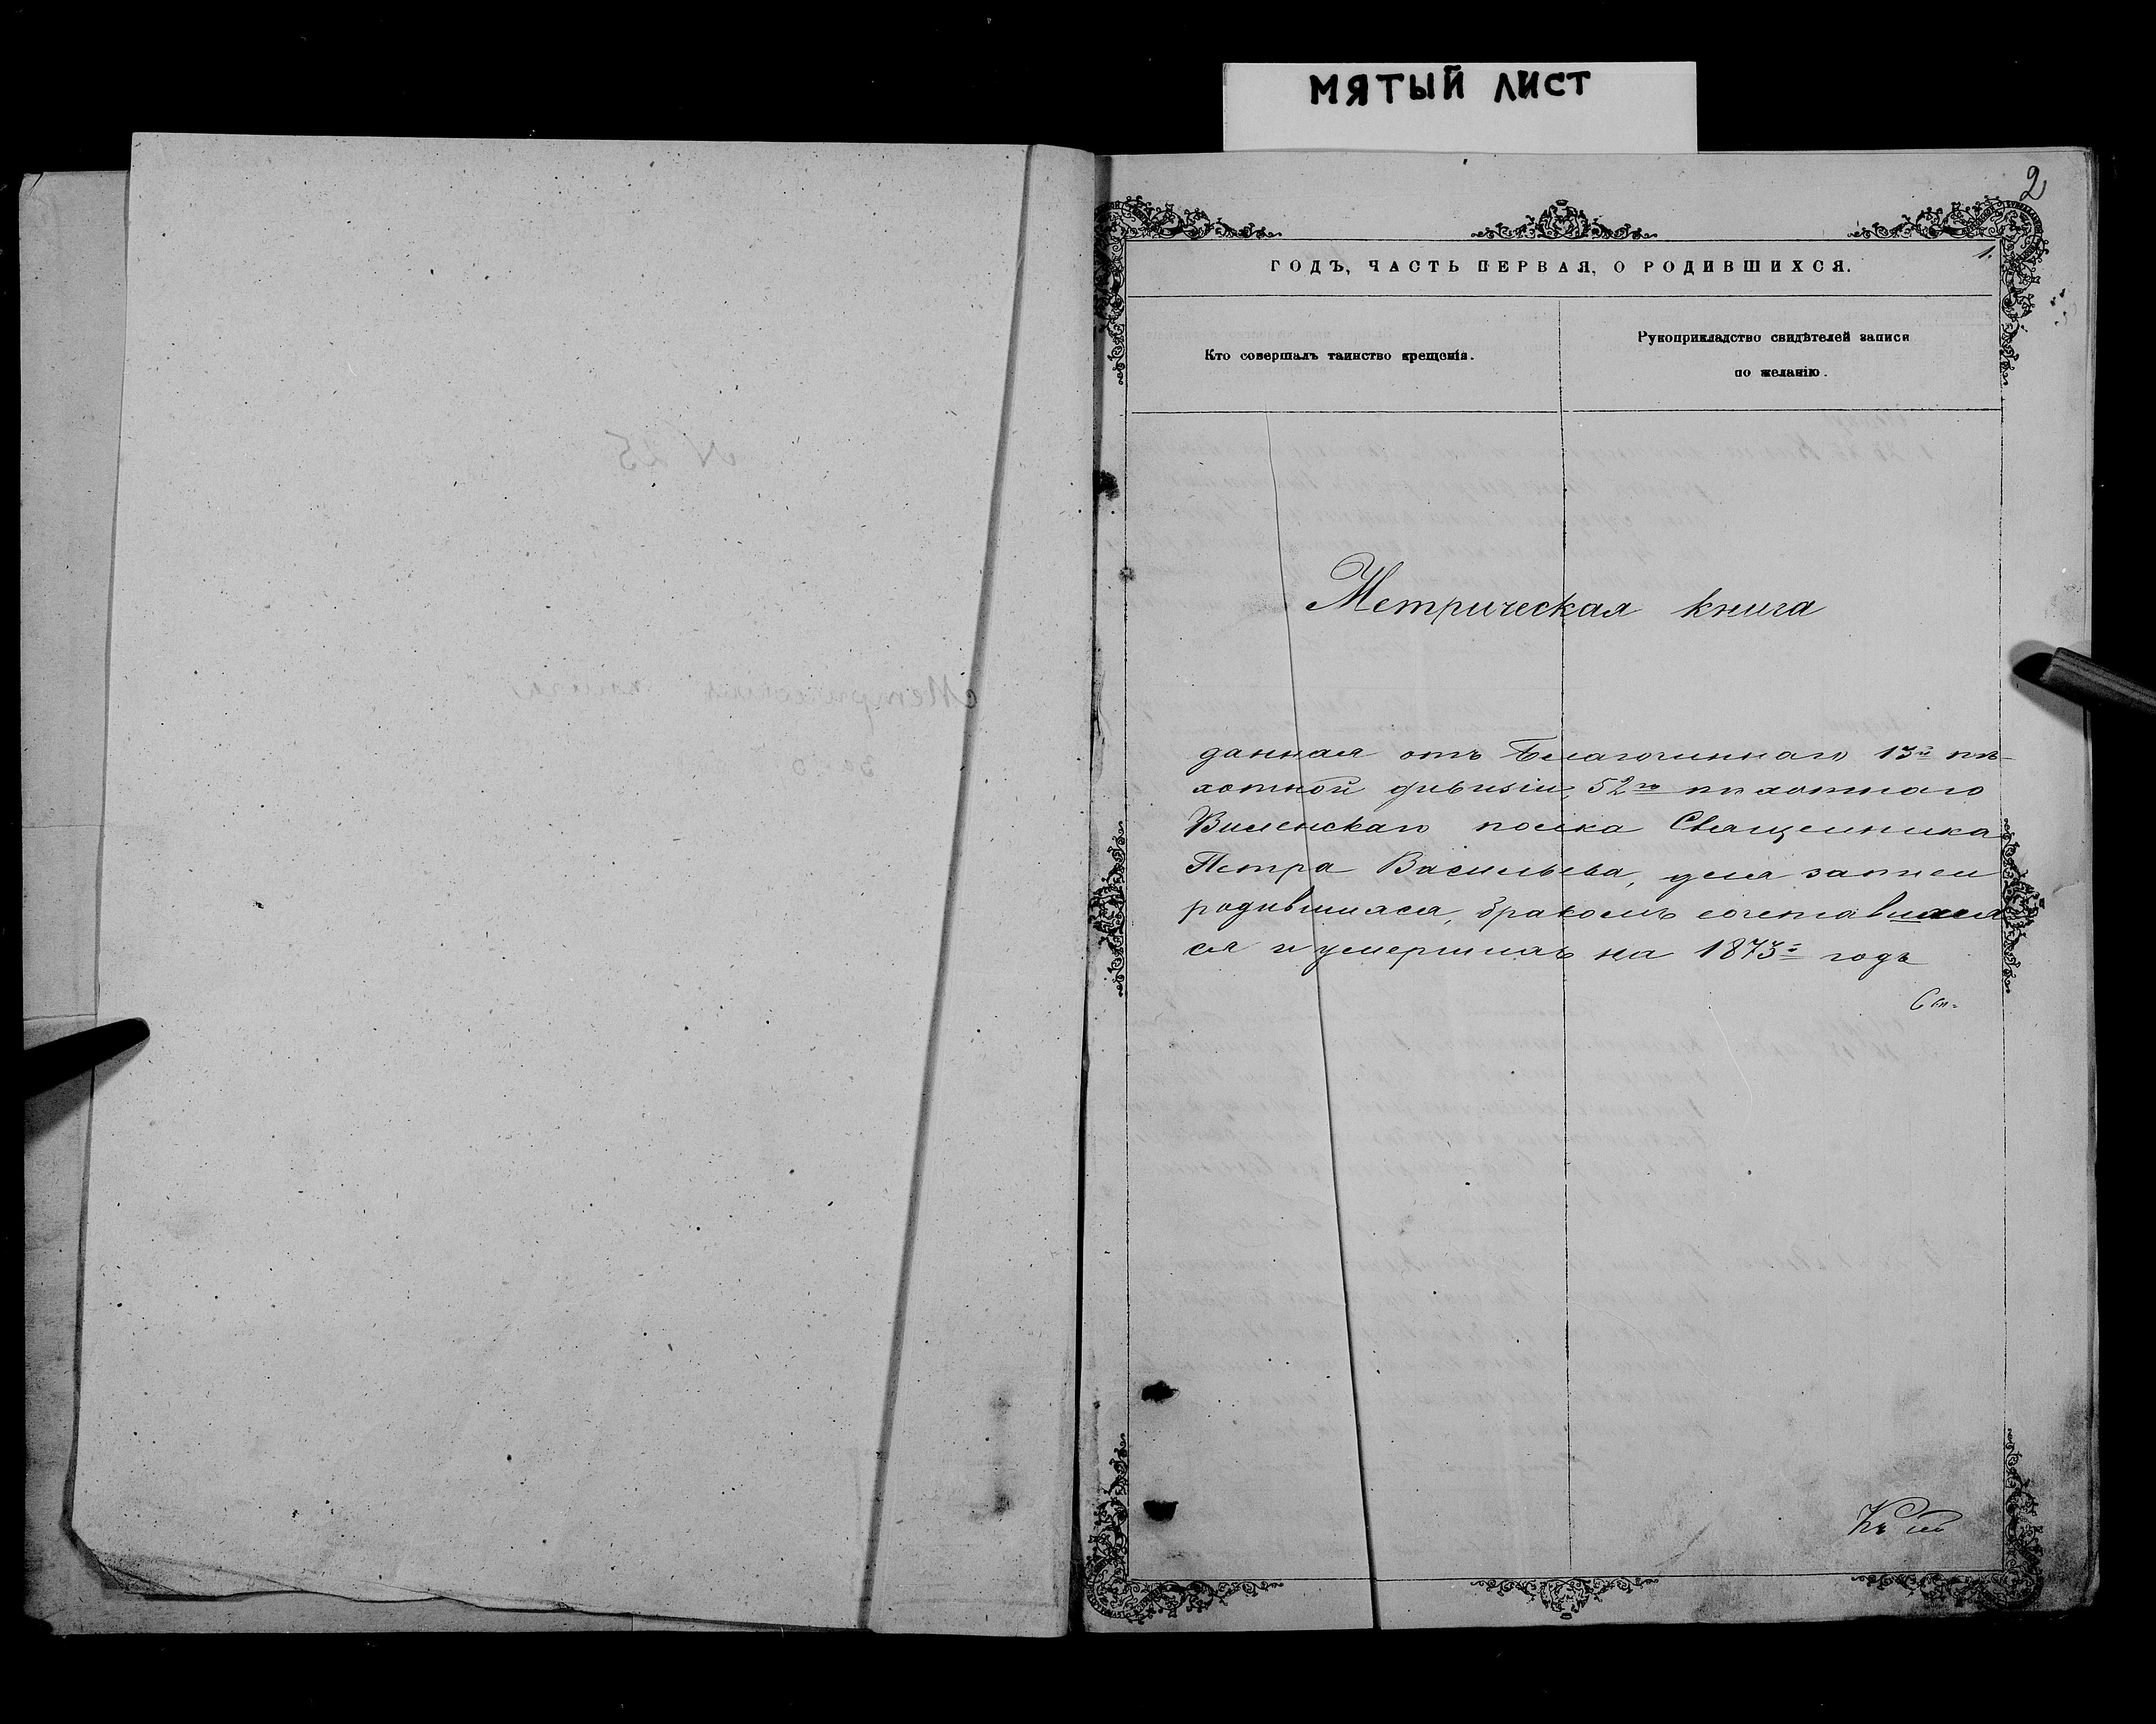 МЯТЫЙ ЛИСТ
2
1.
ГОДЪ, ЧАСТЬ ПЕРВАЯ, О РОДИВШИХСЯ.
Кто совершалъ таинство крещенія.
Рукоприкладство свидѣтелей записи
по желанію.
Метрическая книга
данная отъ Благочиннаго 13й пѣ-
хотной дивизіи, 52го пѣхотнаго
Виленскаго полка Священника
Петра Васильева, для записи
родившихся, бракомъ сочетавшихся
ся и умершихъ на 1873й годъ